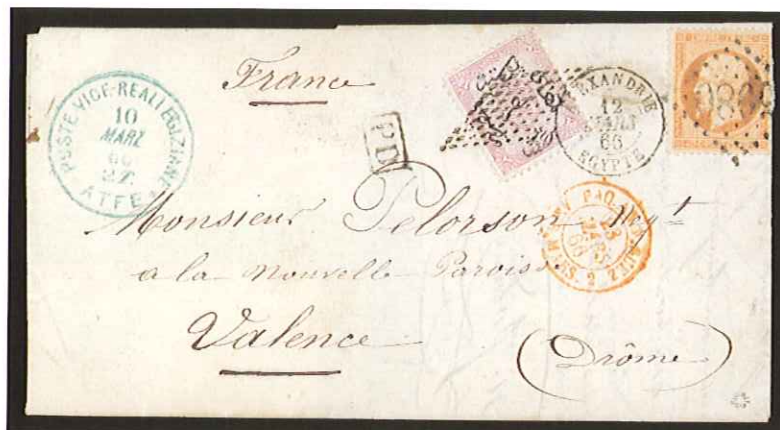 France
POSTE VICE-REALI EGIZIANE
10
MARZ
66
ATFE
PD
ALEXANDRIE
12
MARS
66
EGYPTE
5080
MARS
66
Monsieur Pelorson Mgt
a la Nouvelle Paroisse
Valence
(Drôme)